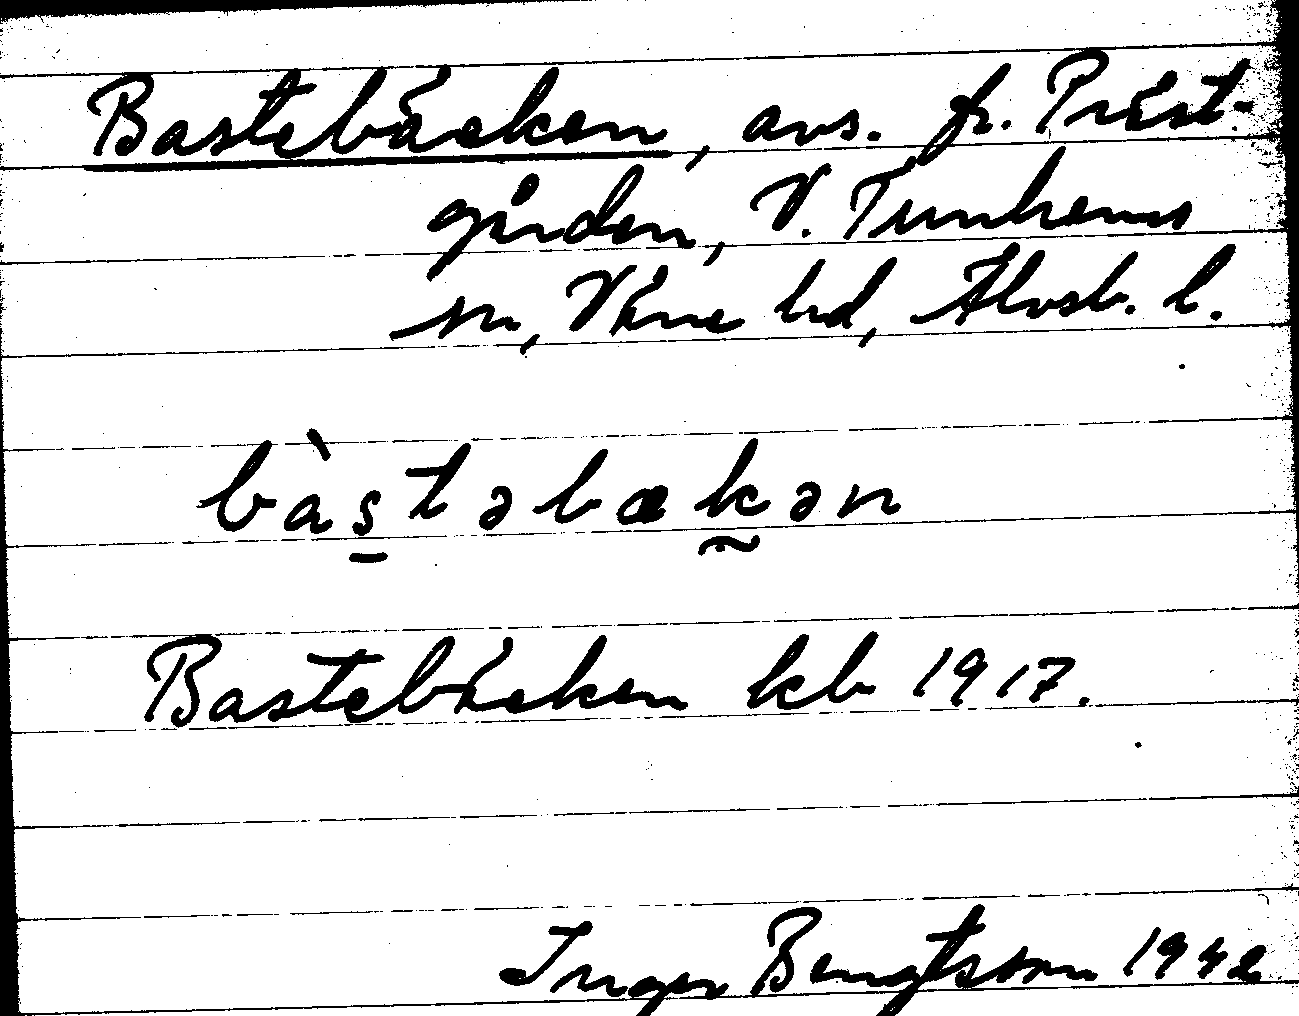 Bastebäcken, avs. fr. Präst-
gården, V. Tunhems
sn, Väne hd, Älvsb. l.
bàs̠təbæk̰ən
Bastebäcken kb 1917.
Inger Bengtsson 1942